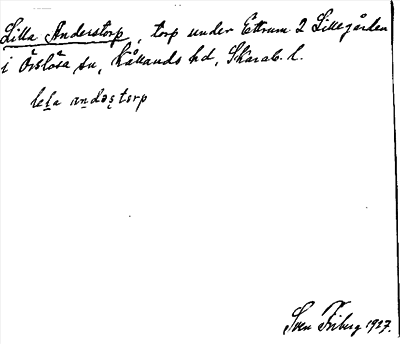 Lilla Anderstorp, torp under Ettrum 2 Lillegården
i Örslösa sn, Kållands hd, Skarab. l.
Sven Friberg 1927.